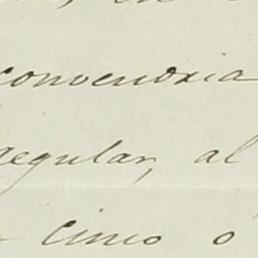 convendria
regular, al
cinco ó